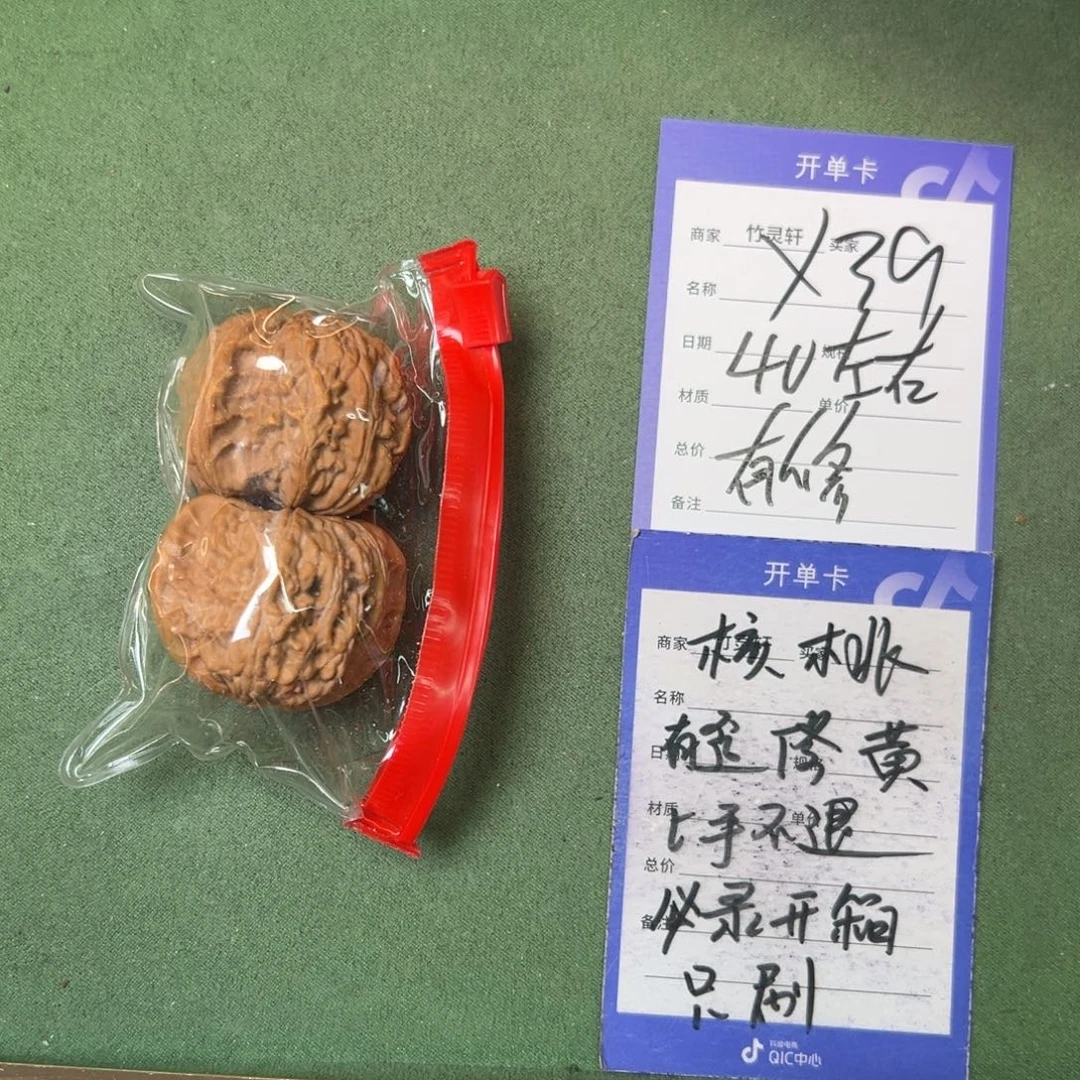 开单卡
商家 竹灵轩 买家
Y39
名称
日期 规格
40左右
材质 单价
总价
有修
备注
开单卡
商家
核桃
名称
有歪修黄
材质 单价
上手不退
总价
备注
必录开箱
只刷
抖音电商
QIC中心